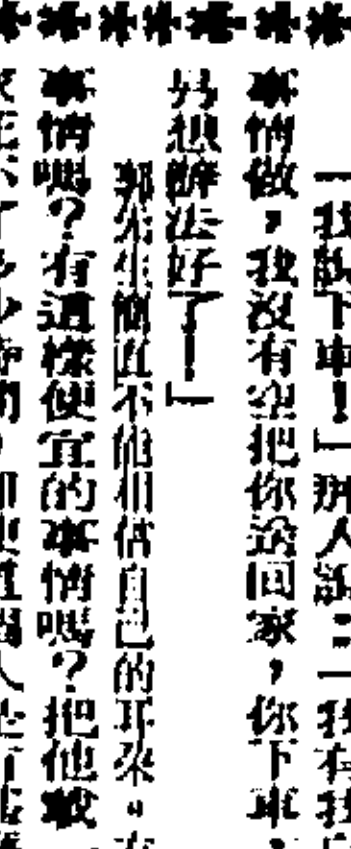 「我說下車!」那人說:「我有我
事情做,我沒有空把你送回家,你下車,
另想辦法好了!」
郭先生簡直不能相信自己的耳朵。有
事情嗎?有這樣便宜的事情嗎?把他載